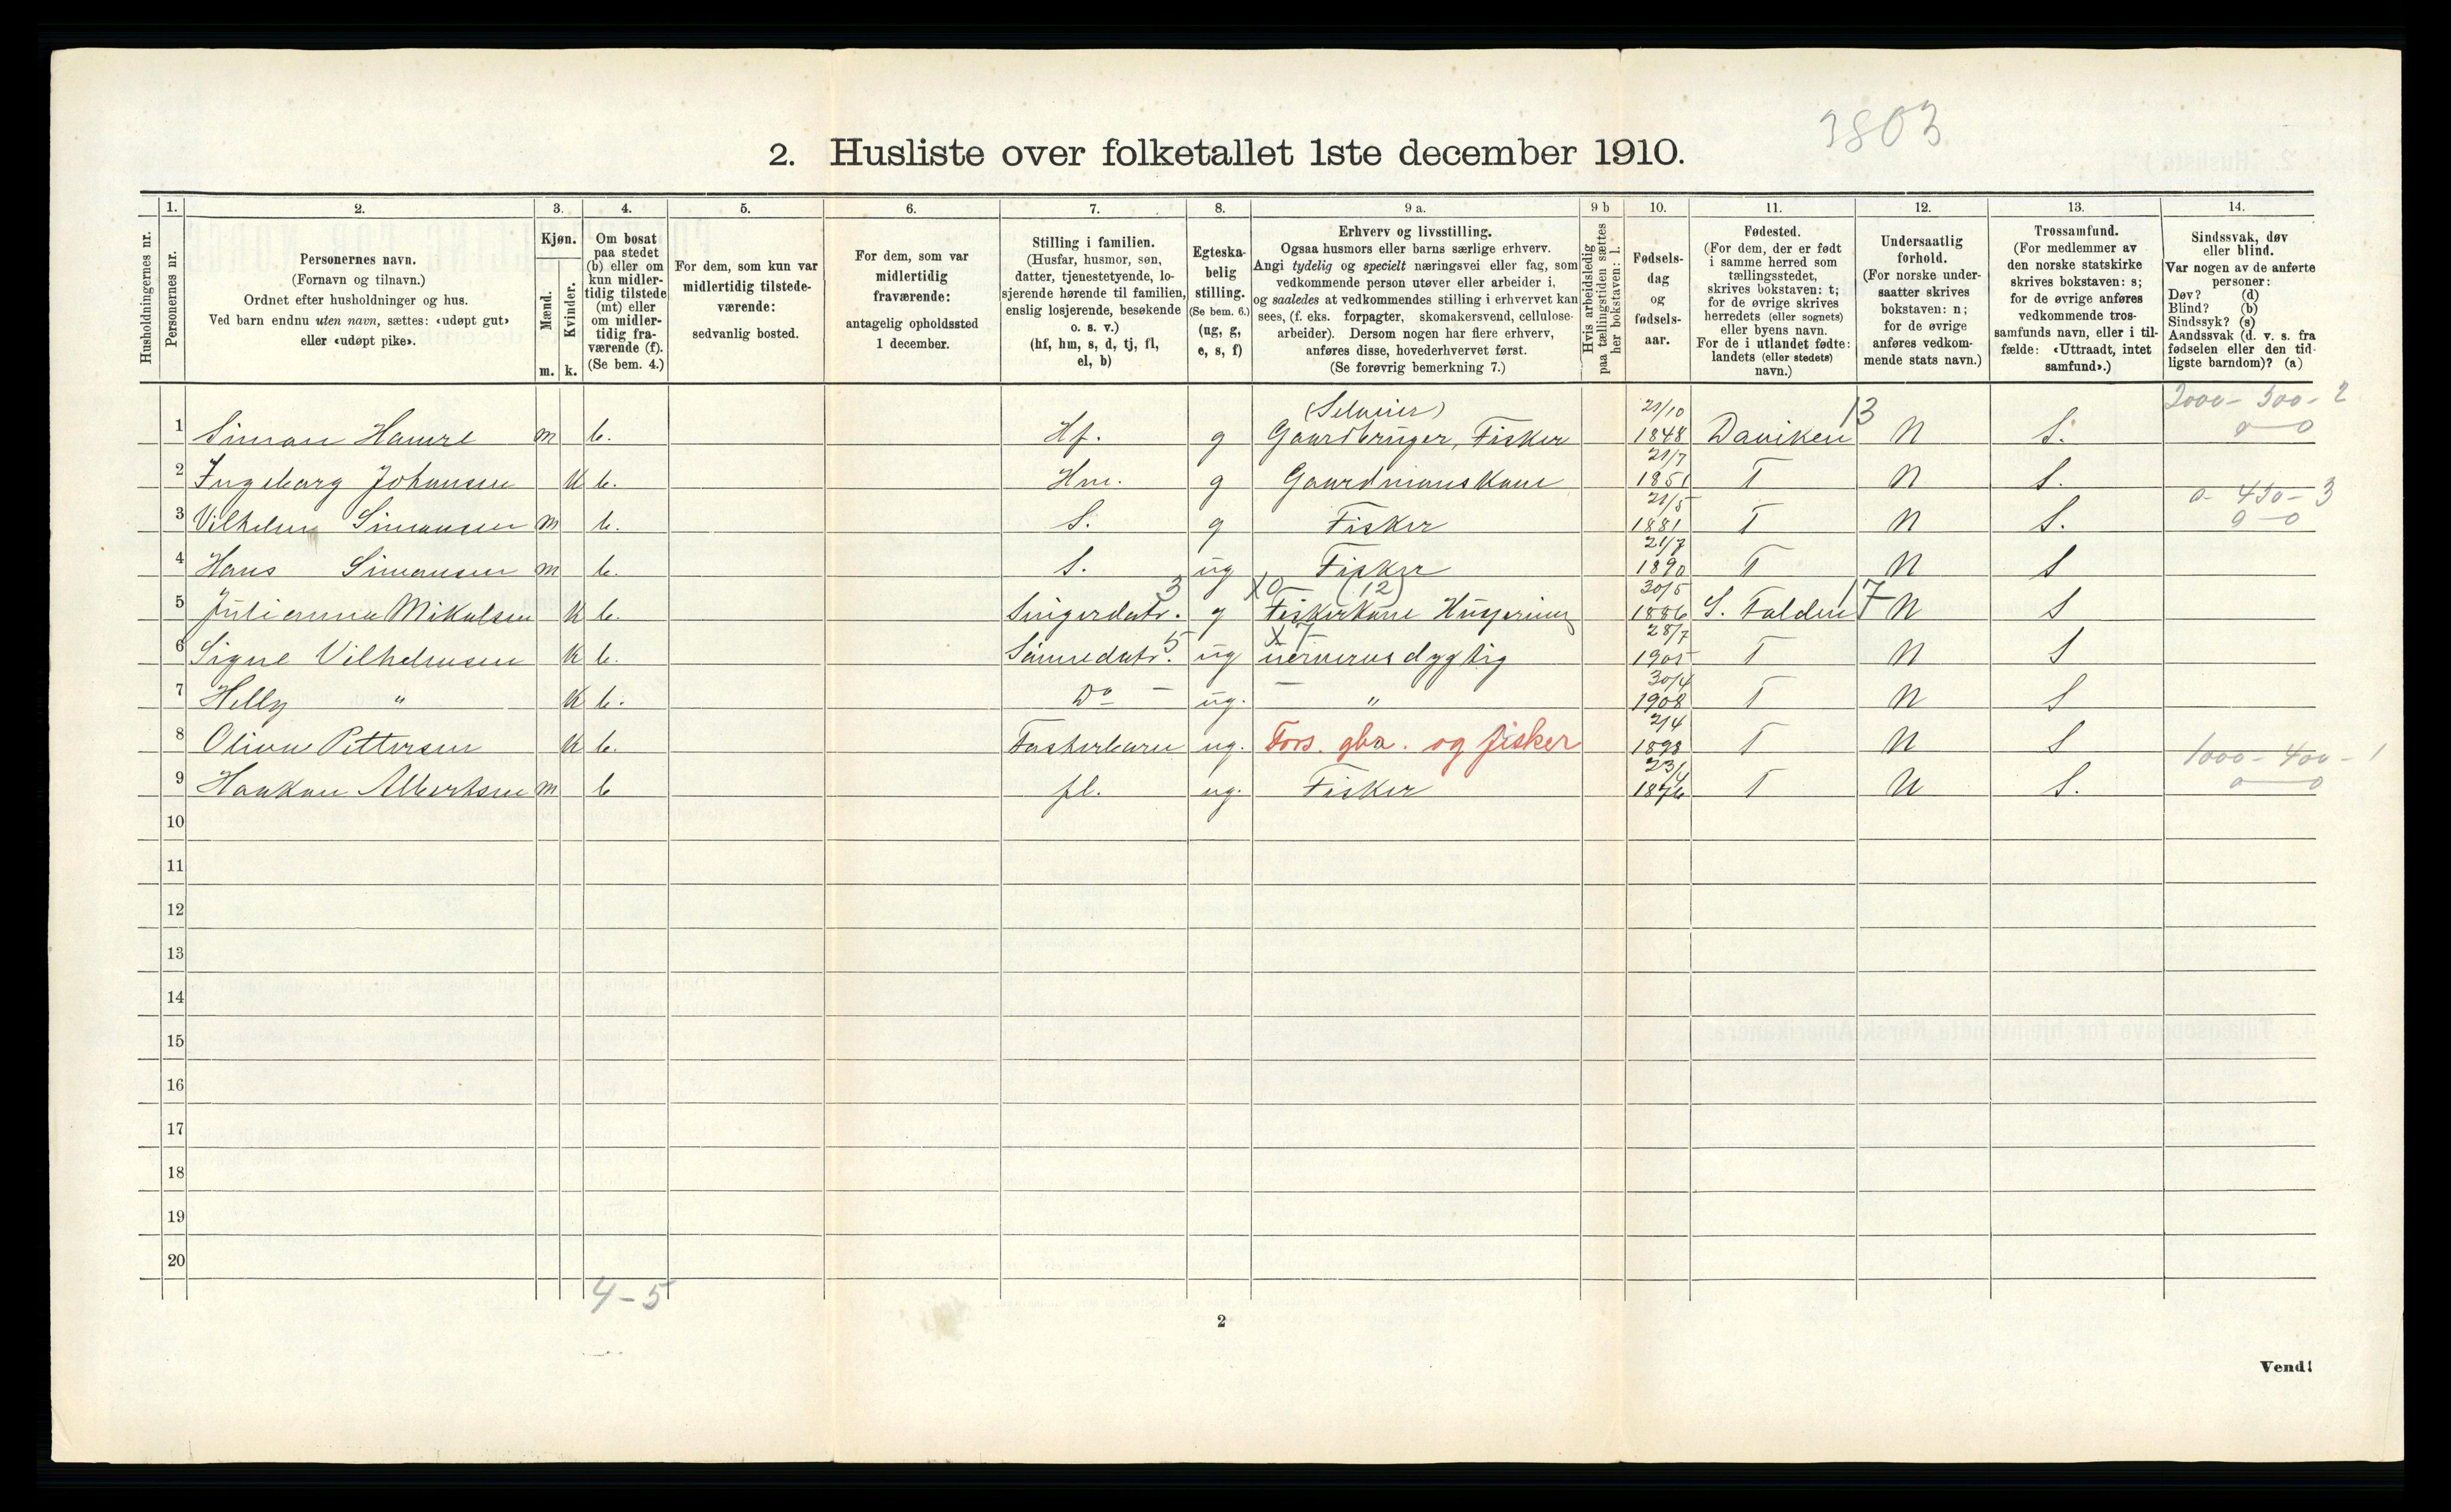 3803
2. Husliste over folketallet 1ste december 1910.
Husholdningernes nr.
1. Personernes nr.
2. Personernes navn. (Fornavn og tilnavn.) Ordnet efter husholdninger og hus. Ved barn endnu uten navn, sættes: «udøpt gut» eller «udøpt pike».
3. Kjøn. Mænd. m. Kvinder. k.
4. Om bosat paa stedet (b) eller om kun midlertidig tilstede (mt) eller om midlertidig fraværende (f). (Se bem. 4.)
5. For dem, som kun var midlertidig tilstedeværende: sedvanlig bosted.
6. For dem, som var midlertidig fraværende: antagelig opholdssted 1 december.
7. Stilling i familien. (Husfar, husmor, søn, datter, tjenestetyende, losjerende hørende til familien, enslig losjerende, besøkende o. s. v.) (hf, hm, s, d, tj, fl, el, b)
8. Egteskabelig stilling. (Se bem. 6.) (ug, g, e, s, f)
9 a. Erhverv og livsstilling. Ogsaa husmors eller barns særlige erhverv. Angi tydelig og specielt næringsvei eller fag, som vedkommende person utøver eller arbeider i, og saaledes at vedkommendes stilling i erhvervet kan sees, (f. eks. forpagter, skomakersvend, cellulosearbeider). Dersom nogen har flere erhverv, anføres disse, hovederhvervet først. (Se forøvrig bemerkning 7.)
9 b Hvis arbeidsledig paa tællingstiden sættes her bokstaven: l.
10. Fødselsdag og fødselsaar.
11. Fødested. (For dem, der er født i samme herred som tællingsstedet, skrives bokstaven: t; for de øvrige skrives herredets (eller sognets) eller byens navn. For de i utlandet fødte: landets (eller stedets) navn.)
12. Undersaatlig forhold. (For norske undersaatter skrives bokstaven: n; for de øvrige anføres vedkommende stats navn.)
13. Trossamfund. (For medlemmer av den norske statskirke skrives bokstaven: s; for de øvrige anføres vedkommende trossamfunds navn, eller i tilfælde: «Uttraadt, intet samfund».)
14. Sindssvak, døv eller blind. Var nogen av de anførte personer: Døv? (d) Blind? (b) Sindssyk? (s) Aandssvak (d. v. s. fra fødselen eller den tidligste barndom)? (a)
(Selveier) 21/10 13 2000 - 300 - 2
1 Simon Hamre m b. Hf. g Gaardbruger, Fisker 1848 Daviken N S. 0 - 0
2 Ingeborg Johansen K b. Hm. g Gaardmanskone 21/7 1851 T N S.
3 Vilhelm Simonsen m b. S. g Fisker 21/5 1881 T N S. 0 - 450 - 3 0 - 0
4 Hans Simonsen m b. S. ug Fisker 21/7 1890 T N S
5 Julianna Mikalsen K b. 3 g X0 (12) Fiskerkone 30/5 1886 S. 17 N S
6 Signe Vilhelmsen K b. Sønnedatr. 5 ug X7 uervervsdygtig 28/7 1905 T N S
7 Helly " K b. Do - ug. " 30/4 1908 T N S
8 Oline Pettersen K b. Fosterbarn ug. Fors. gbr. og fisker 2/4 1898 T N S
9 Haakon Albertsen m b fl. ug. Fisker 23/4 1876 T N S. 1000 - 400 - 1 0 - 0
10
11
12
13
14
15
16
17
18
19
20
4 - 5
2
Vend!